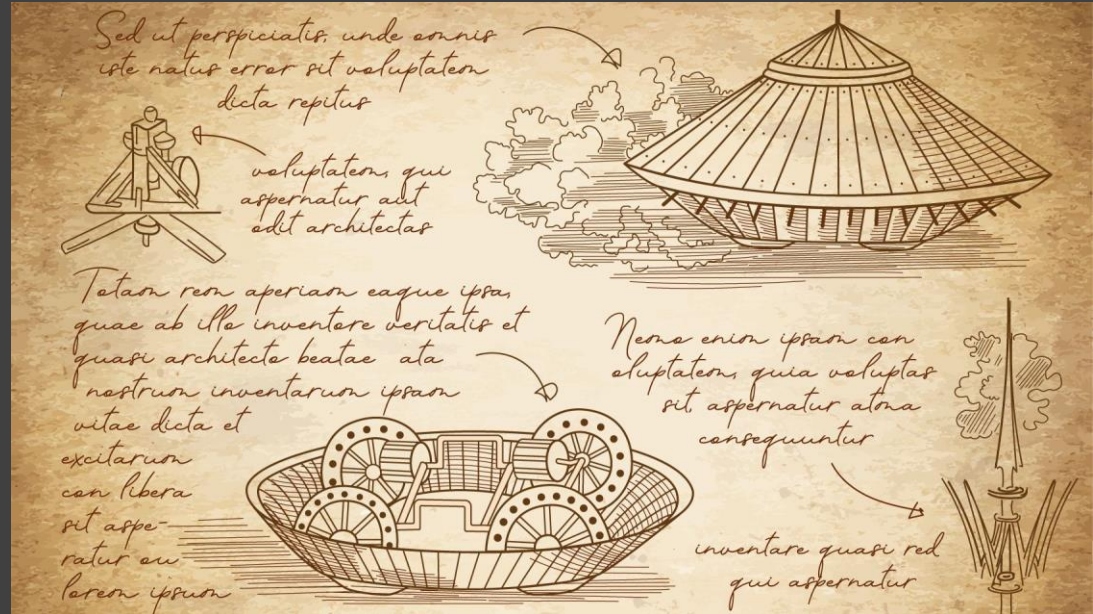 Sed ut perspiciatis, unde omnis
iste natus error sit voluptatem
dicta repitus
voluptatem, qui
aspernatur aut
odit architectas
Totam rem aperiam eaque ipsa,
quae ab illo inventore veritatis et
quasi architecto beatae ata
nostrum inventarum ipsam
vitae dicta et
excitarum
con libera
sit aspe-
ratur ou
lorem ipsum
Nemo enim ipsam con
oluptatem, quia voluptas
sit aspernatur atma
consequuntur
inventare quasi red
qui aspernatur